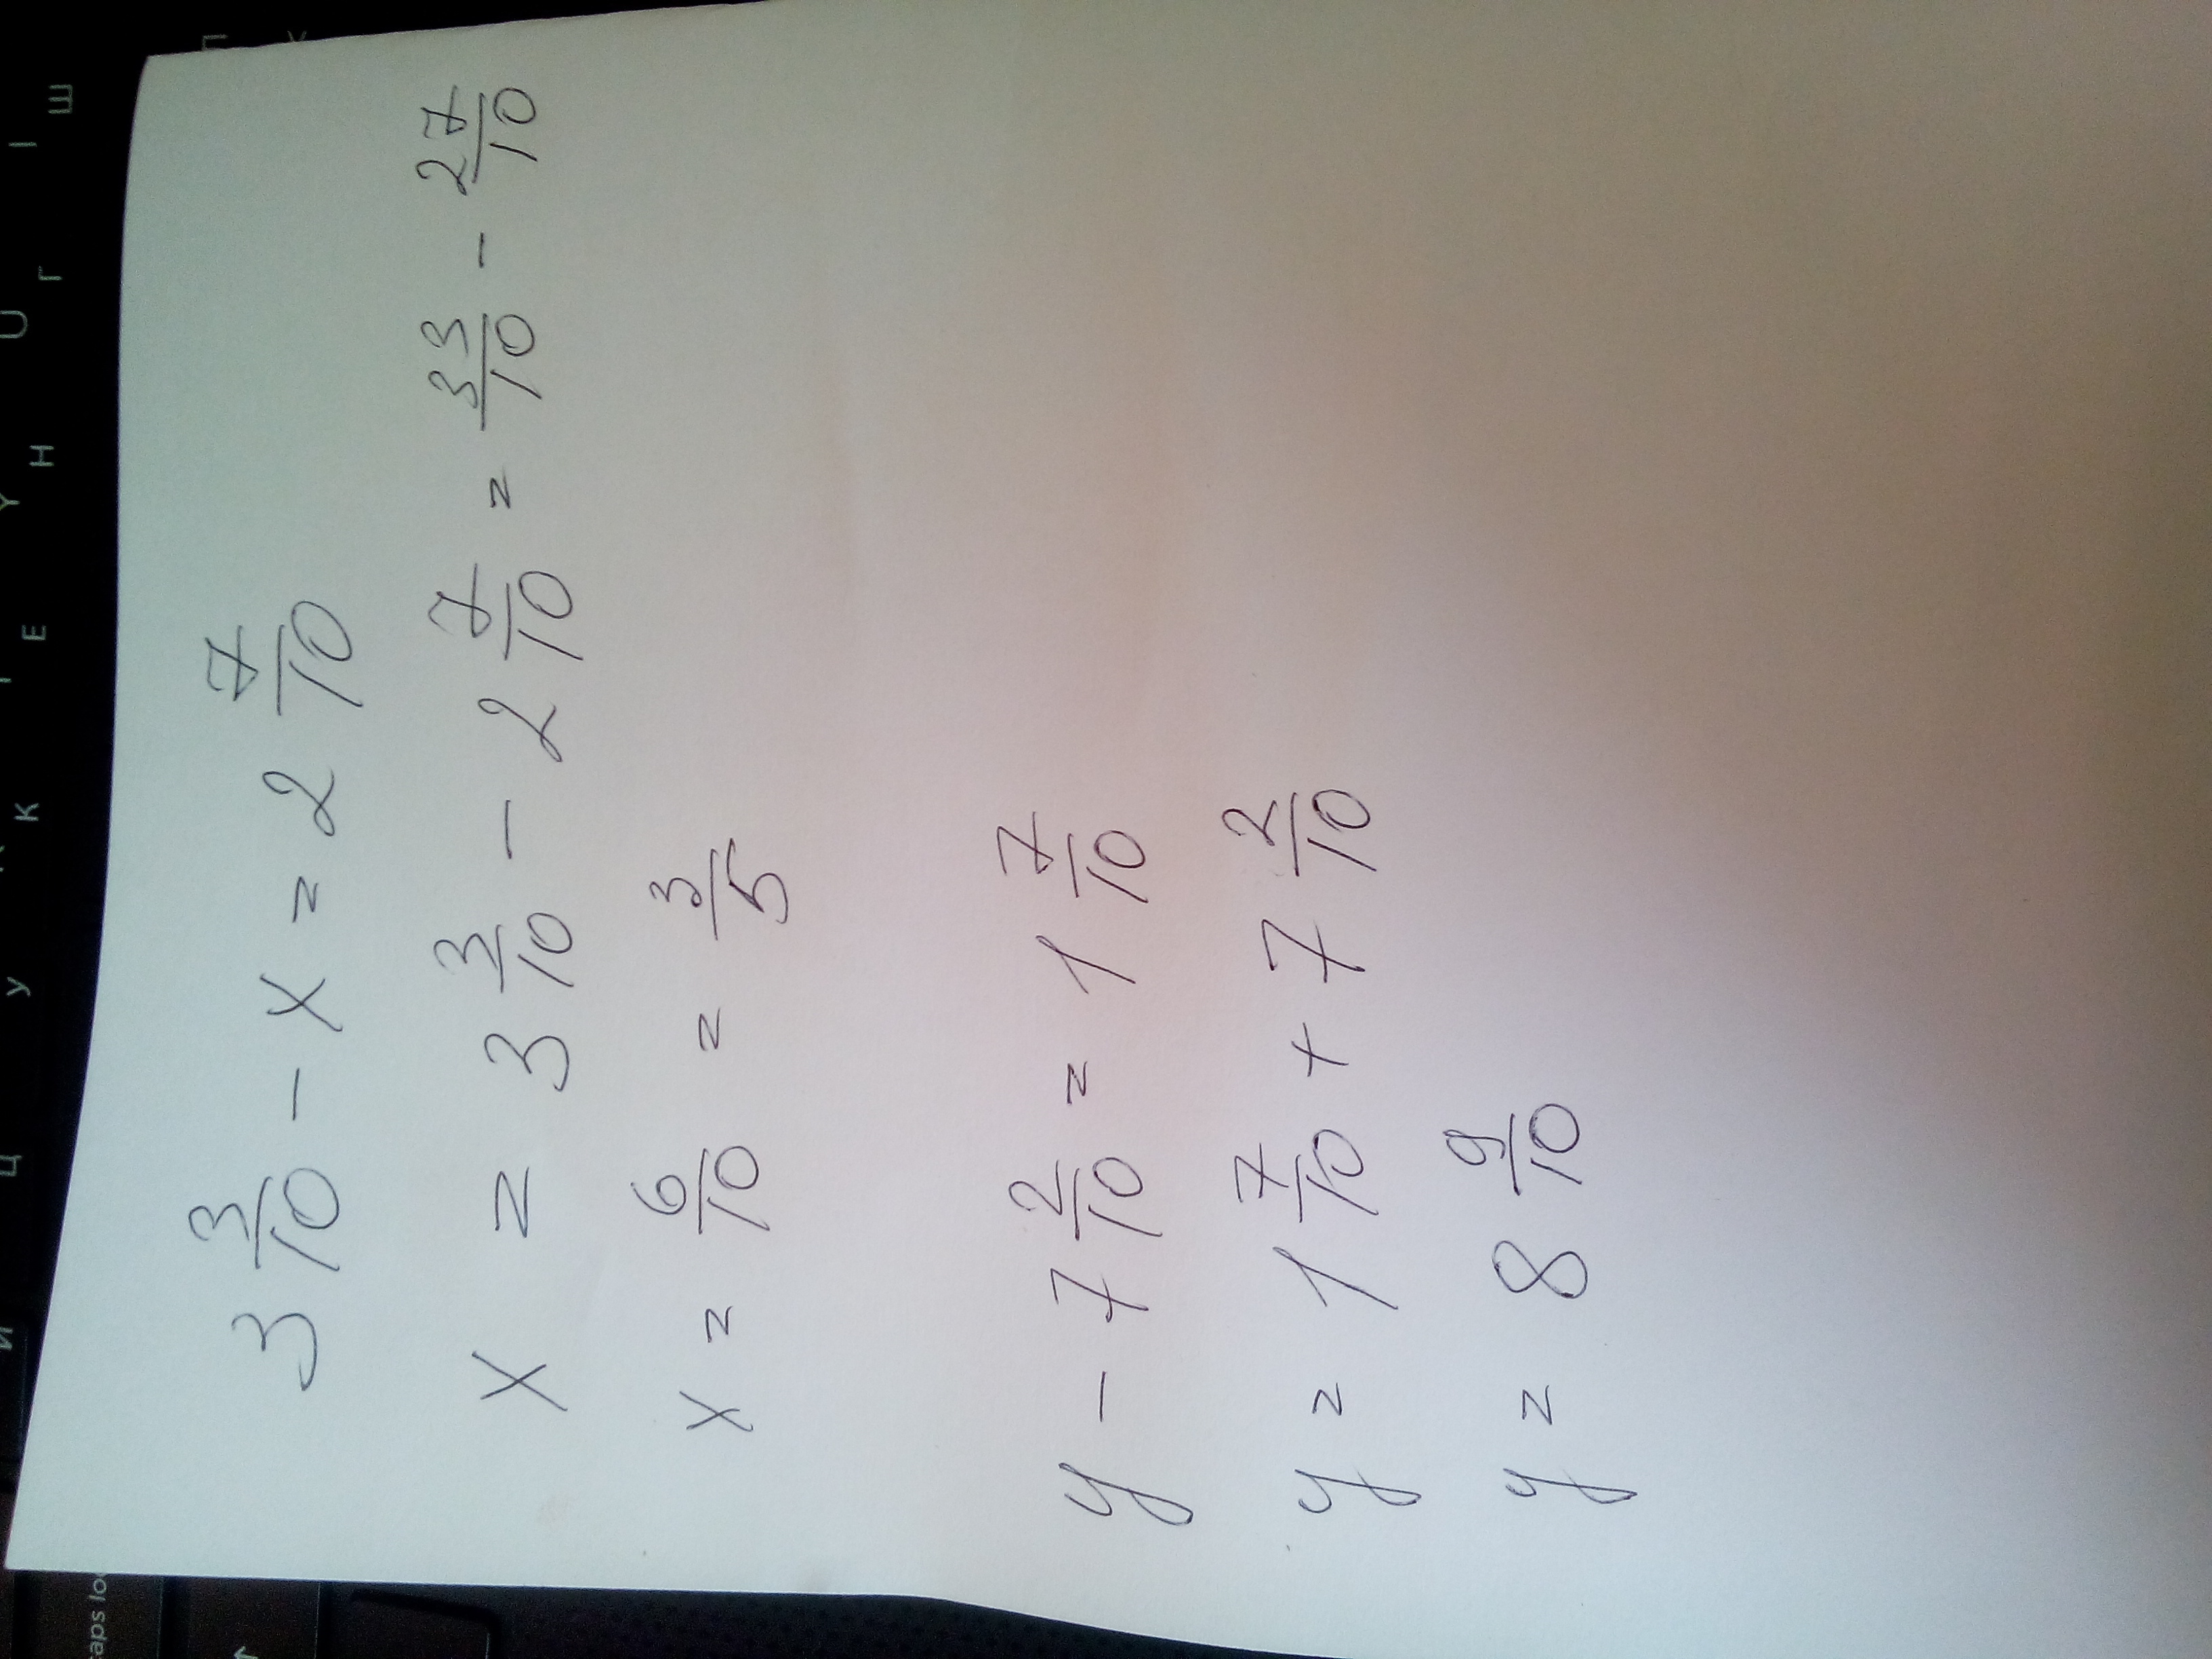 3 3/10 - x = 2 7/10
x = 3 3/10 - 2 7/10 = 33/10 - 27/10
x = 6/10 = 3/5
y - 7 2/10 = 1 7/10
y = 1 7/10 + 7 2/10
y = 8 9/10
caps lo
И Ц У К Е Н Г Ш
Y U I